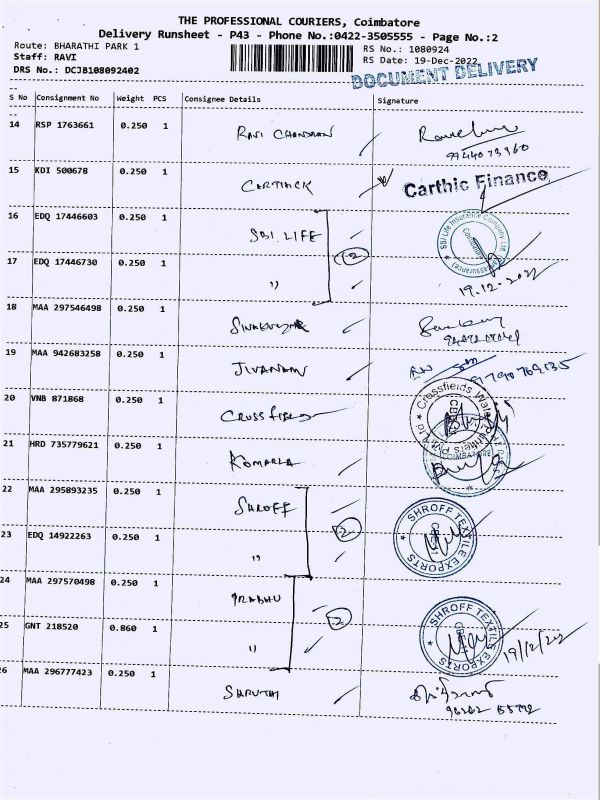 THE PROFESSIONAL COURIERS, Coimbatore
Delivery Runsheet - P43 - Phone No.:0422-3505555 - Page No.:2
Route: BHARATHI PARK 1
RS No.: 1080924
Staff: RAVI
RS Date: 19-Dec-2022
DRS No.: DCJB108092402
DOCUMENT DELIVERY
S No Consignment No Weight PCS Consignee Details Signature
14 RSP 1763661 0.250 1 RAVI CHANDRAN
9944073960
15 KDI 500678 0.250 1 CARTHICK Carthic Finance
16 EDQ 17446603 0.250 1 SBI LIFE
SBI Life Insurance Company Ltd
2
17 EDQ 17446730 0.250 1 "
19.12.2022
18 MAA 297546498 0.250 1
19 MAA 942683258 0.250 1 JIVANAM
20 VNB 871868 0.250 1 CROSSFIELD
Crossfields Water Purifiers Pvt Ltd
21 HRD 735779621 0.250 1 KOMALA
COIMBATORE
22 MAA 295893235 0.250 1 SHROFF
SHROFF TEXTILE EXPORTS
2
23 EDQ 14922263 0.250 1 "
24 MAA 297570498 0.250 1 PRABHU
2
SHROFF TEXTILE EXPORTS
25 GNT 218520 0.860 1 "
19/12/22
26 MAA 296777423 0.250 1 SHRUTHI